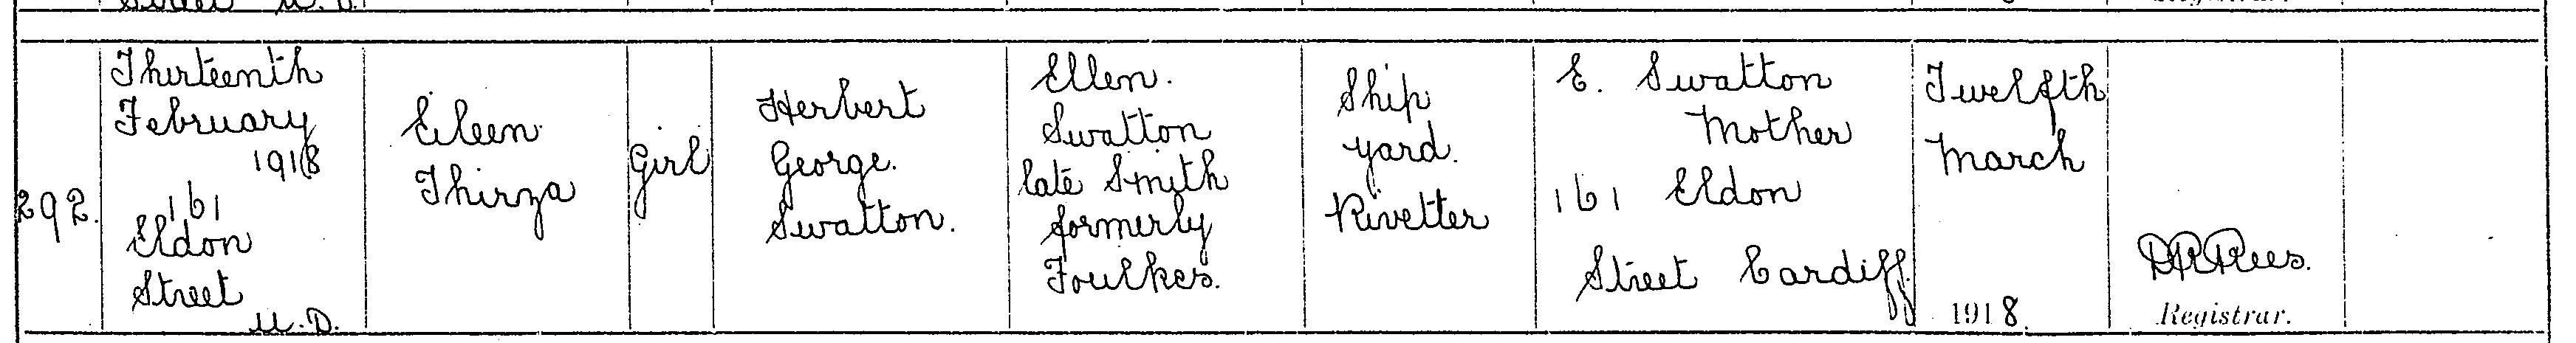 292.
Thirteenth
February
1918
161
Eldon
Street
U.D.
Eileen
Thirza
Girl
Herbert
George.
Swatton.
Ellen.
Swatton
late Smith
formerly
Foulkes.
Ship
yard.
Rivetter
E. Swatton
Mother
161 Eldon
Street Cardiff.
Twelfth
March
1918.
D R Rees.
Registrar.